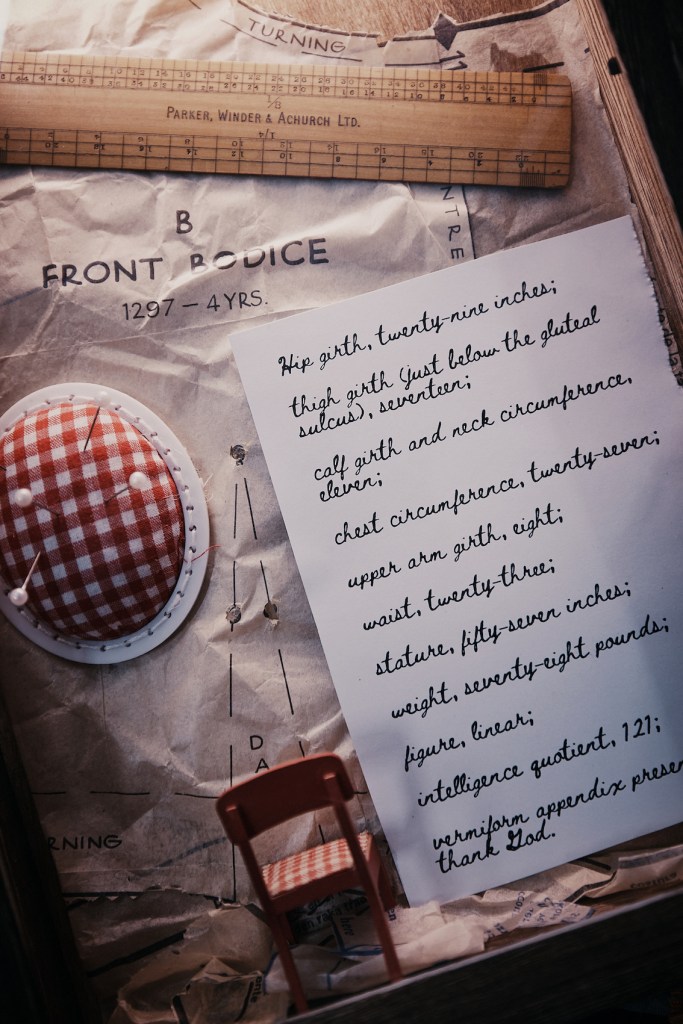 TURNING
1/8
PARKER, WINDER & ACHURCH LTD.
1/4
NTRE
B
FRONT BODICE
1297 – 4 YRS.
Hip girth, twenty-nine inches;
thigh girth (just below the gluteal
sulcus), seventeen;
calf girth and neck circumference,
eleven;
chest circumference, twenty-seven;
upper arm girth, eight;
waist, twenty-three;
stature, fifty-seven inches;
weight, seventy-eight pounds;
figure, linear;
intelligence quotient, 121;
vermiform appendix presen
thank God.
D
A
RNING